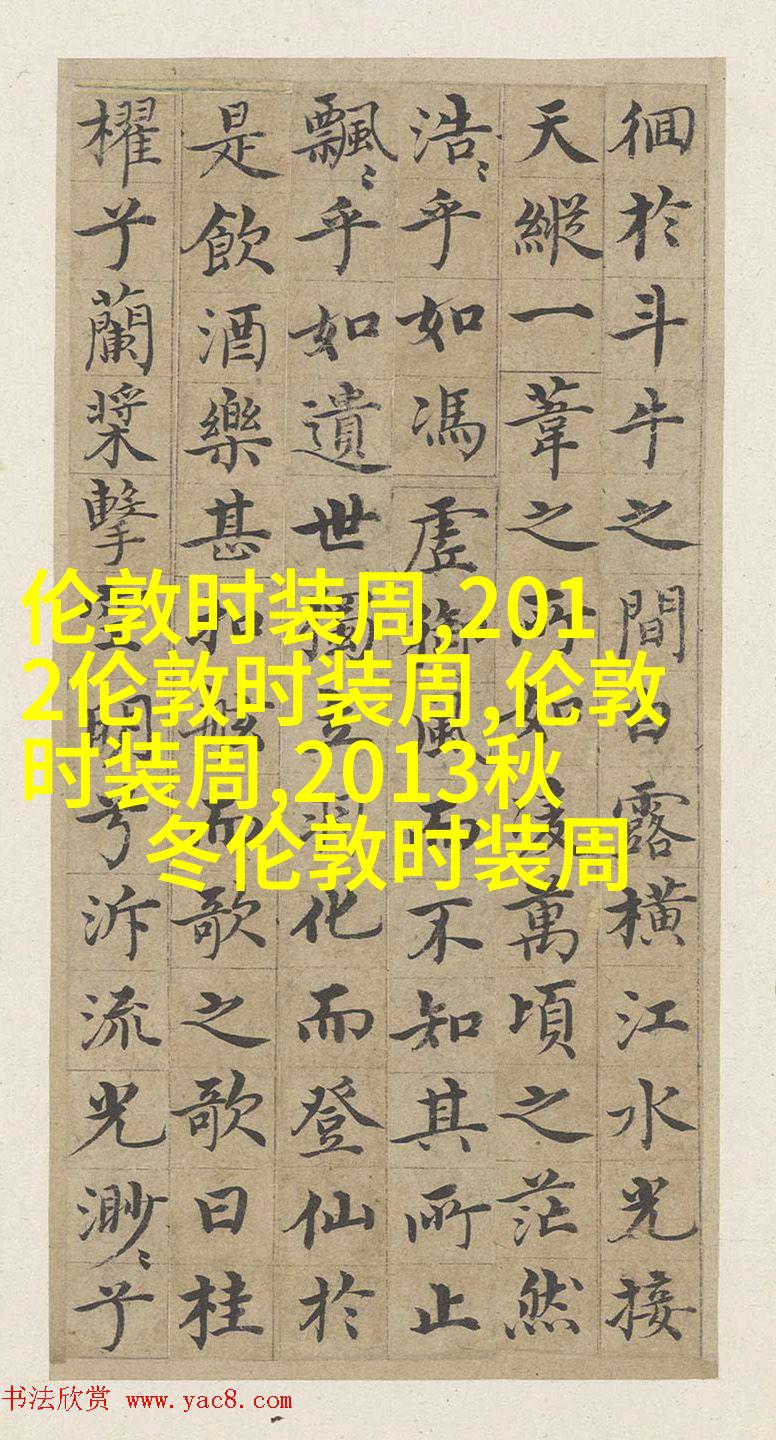 徊於斗牛之間白露橫江水光接
天縱一葦之所如萬頃之茫然
浩〻乎如馮虛風而不知其所止
飄〻乎如遺世獨立化而登仙於
是飲酒樂甚而歌之歌曰桂
櫂兮蘭槳擊兮泝流光渺〻兮
伦敦时装周,201
2伦敦时装周,伦敦
时装周,2013秋
冬伦敦时装周
书法欣赏 www.yac8.com